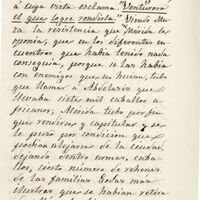 á cuya vista esclama "Venturoso
el que logre rendirla." Viendo Mu-
za la resistencia que Mérida le
oponia; que en los diferentes en-
cuentros que habia tenido nada
conseguia, porque se las habia
con enemigos que no huian; tubo
que llamar á Abdelaziz que
llevaba siete mil caballos a-
fricanos; Mérida tubo por fin
que rendirse y capitular y se
le puso por condicion que
podian alejarse de la ciudad,
dejando dentro armas, caba-
llos, cierto número de rehenes
de las familias Godas mas
ilustres que se habian retira-